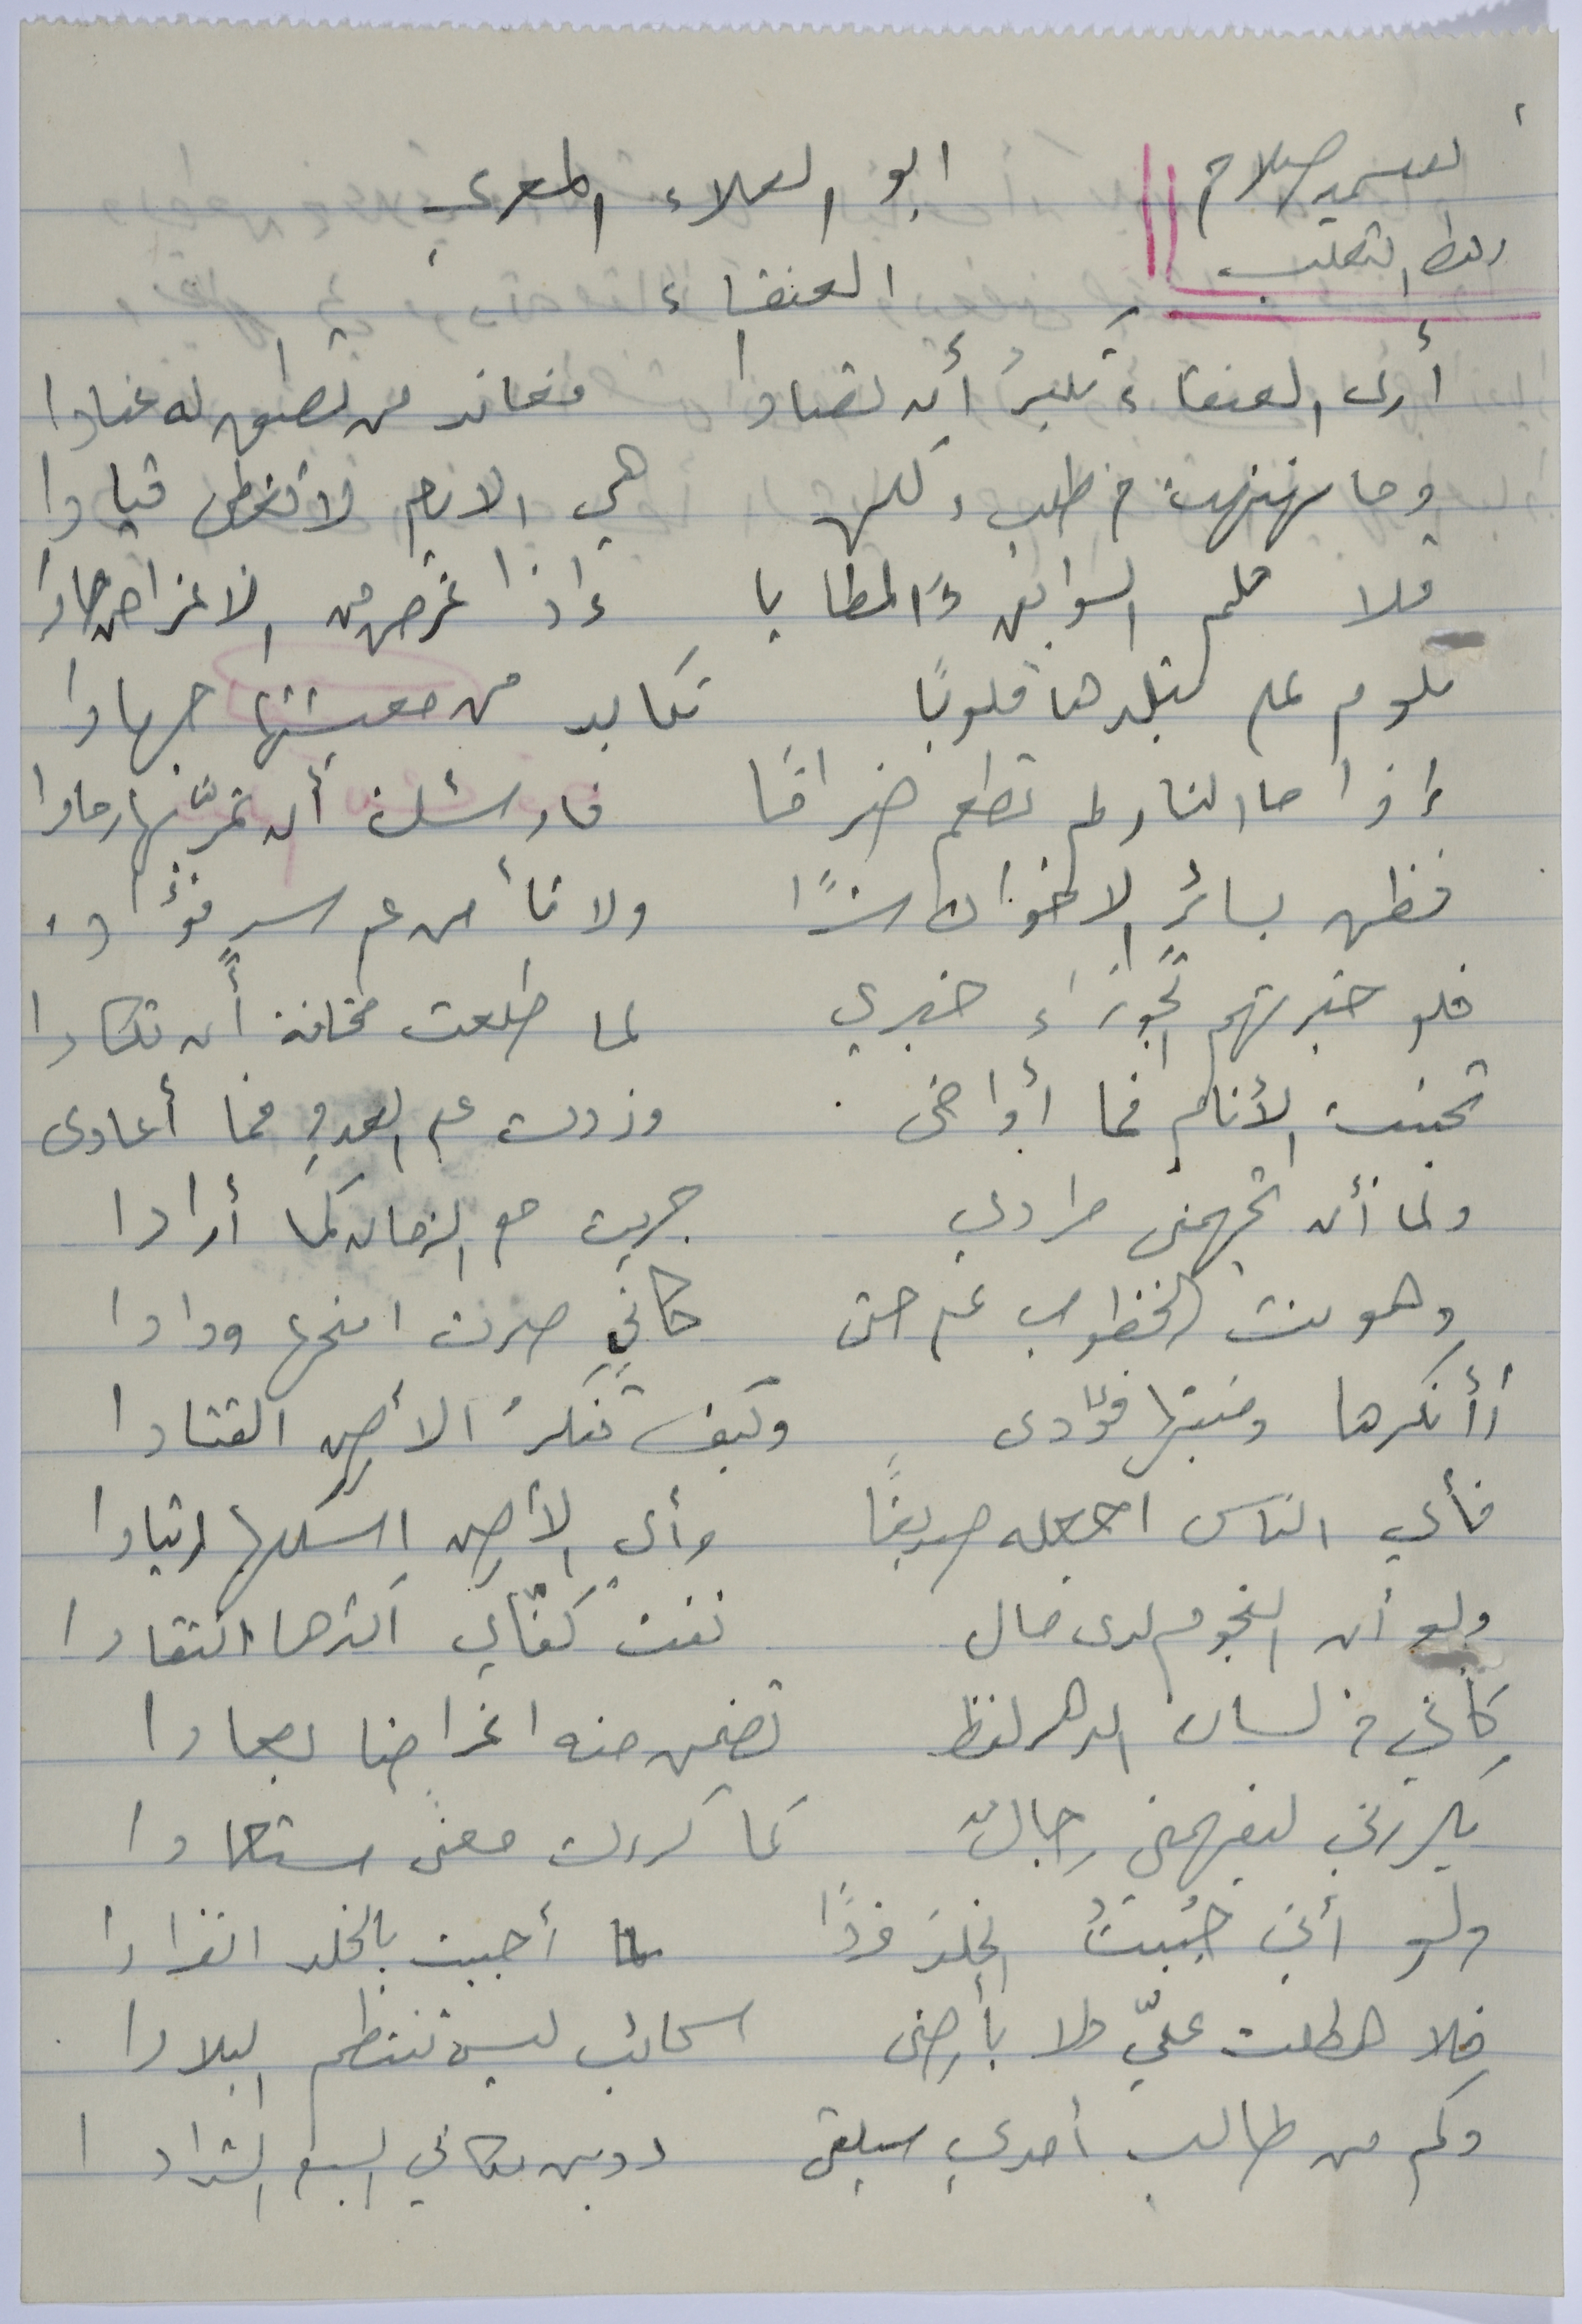 ابو العلاء المعري
العنقاء
أرى العنقاء تكبرُ أن تصادا فعاند من تطيق له عنادا
وما نهنهت في طلب ولكن هي الايام لا تعطي قيادا
فلا تلم السوابق والمطايا إذا غرض من الاغراض حادا
تلوم على تبلدها قلوبًا تكابد من معيشتها جهادا
إذا ما النار لم تطعم ضرامًا فاوشك أن تمرَّ بها رمادا
فظن بسائر الاخوان شرًا ولا تأمن على سرٍ فؤادا
فلو خبرتهم الجوزاء خبري لما طلعت مخافة أن تكادا
تجنبت الأنام فما أواخى وزدت على العدوِ فما أعادى
ولما أن تجهمني مرادي جريت مع الزمان كما أرادا
وهونت الخطوب علي حتى كاني صرت امنحها ودادا
أأنكرها ومنبتها فؤادى وكيف تنكرُ الأرض القتادا
فأي الناس اجعله صديقًا وأي الأرض اسلكها ارتيادا
ولو أن النجوم لدى مال نفت كفّاي اكثرها انتقادا
كأني في لسان الدهر لفظ تضمن منه اغراضا بعادا
يكررني ليفهمني رجالٌ كما كررت معنًى مستعادا
ولو أني حُبيتُ الخلدَ فردًا لما أحببت بالخلد انفرادا
فلا هطلت عليّ ولا بأرضى سحائب ليس تنتظم البلادا
وكم من طالب أمدي سيلقى دوين مكاني السبع الشدادا